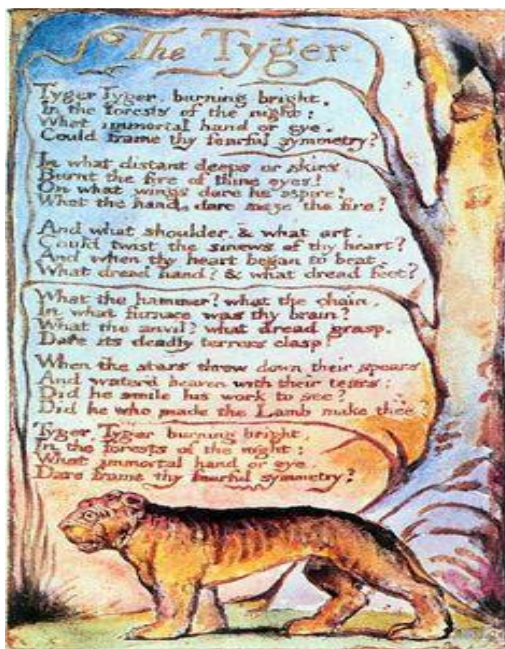 The Tyger
Tyger Tyger, burning bright,
In the forests of the night:
What immortal hand or eye,
Could frame thy fearful symmetry?
In what distant deeps or skies
Burnt the fire of thine eyes!
On what wings dare he aspire?
What the hand, dare seize the fire?
And what shoulder, & what art,
Could twist the sinews of thy heart?
And when thy heart began to beat,
What dread hand? & what dread feet?
What the hammer? what the chain,
In what furnace was thy brain?
What the anvil? what dread grasp,
Dare its deadly terrors clasp!
When the stars threw down their spears
And water'd heaven with their tears:
Did he smile his work to see?
Did he who made the Lamb make thee?
Tyger, Tyger burning bright,
In the forests of the night:
What immortal hand or eye,
Dare frame thy fearful symmetry?